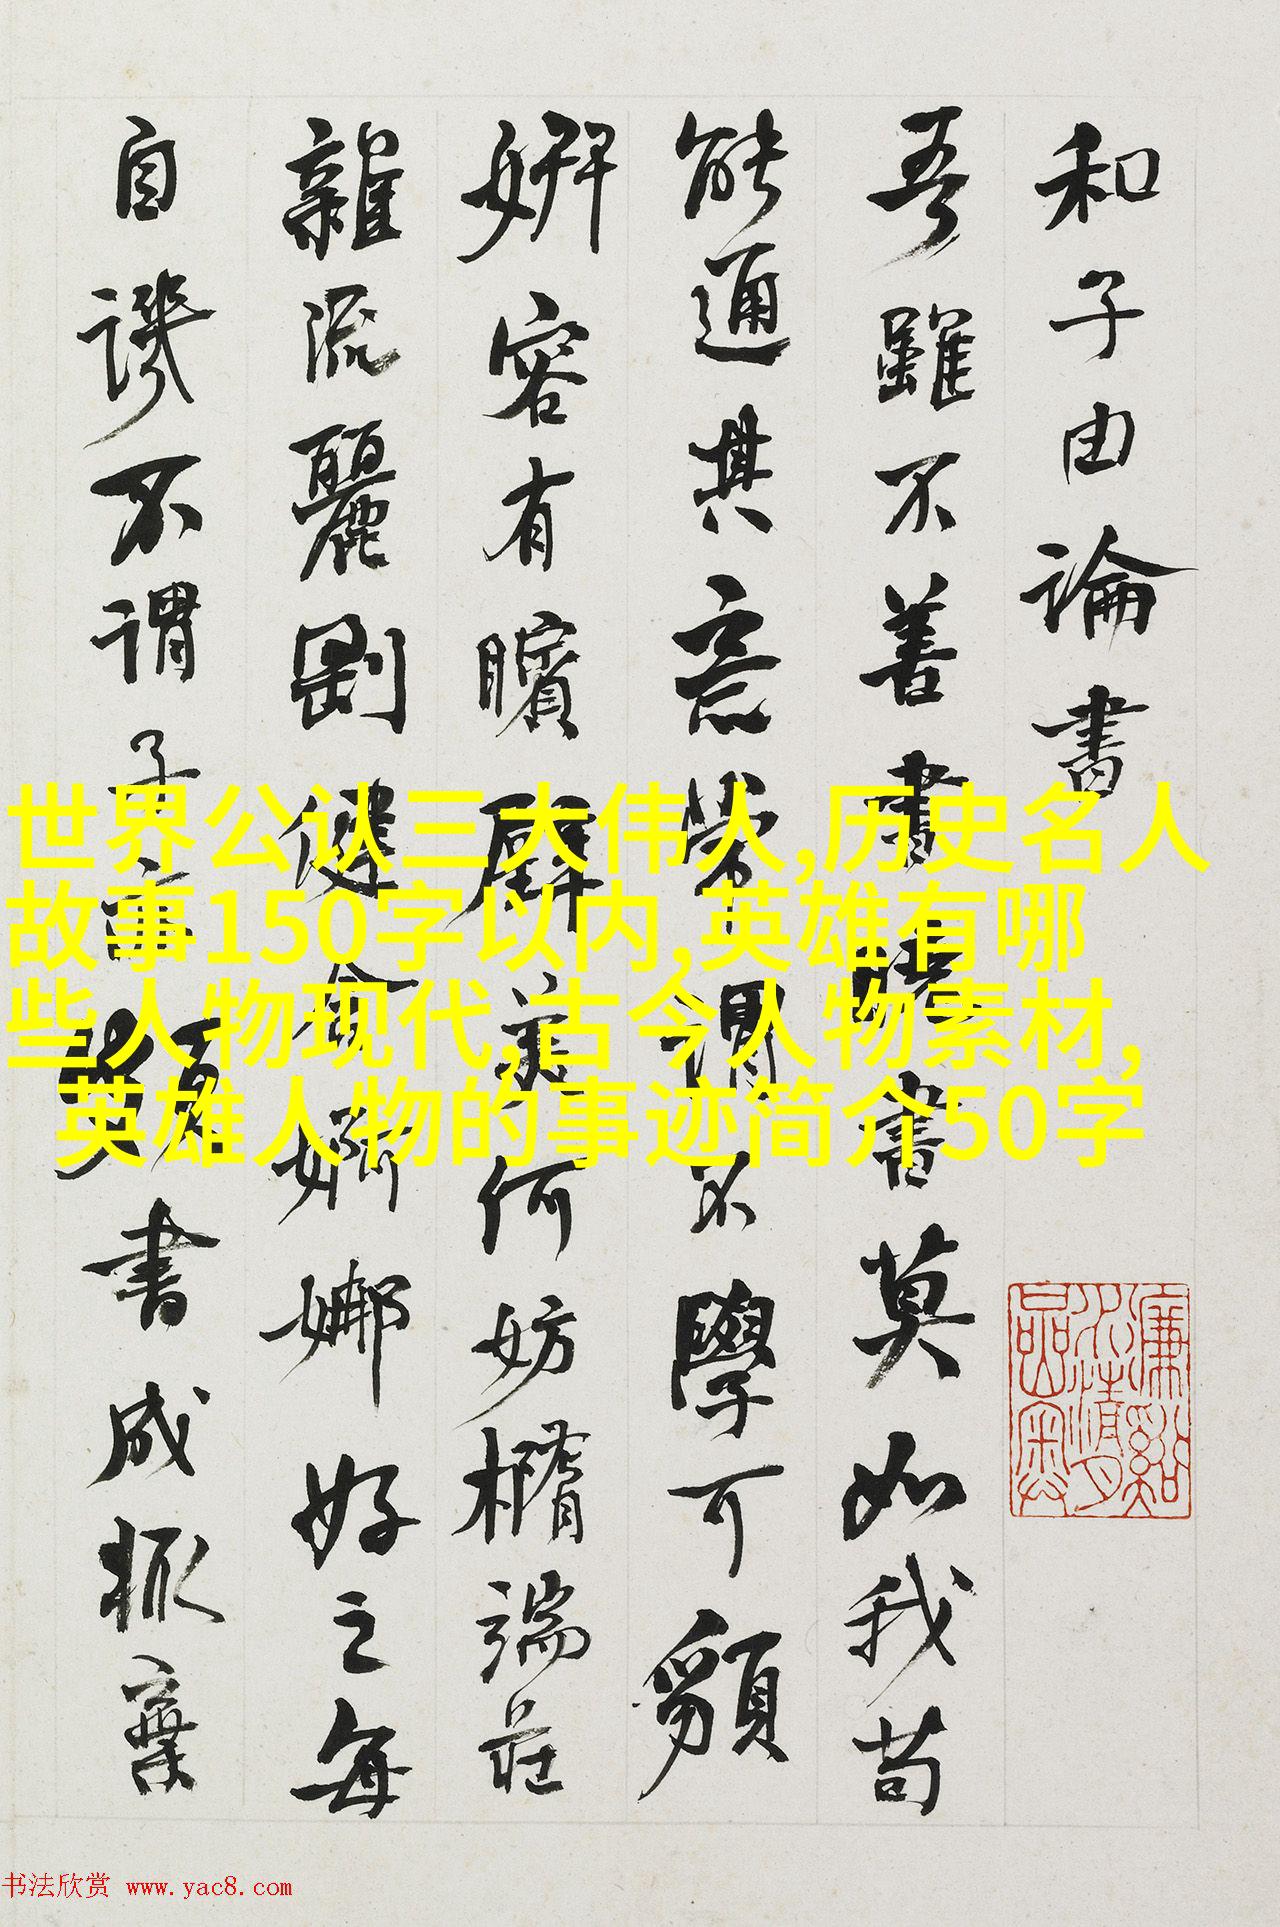 和子由論書
吾雖不善書曉書莫如我苟
能通其意常謂不學可䫉
妍容有矉璧美何妨橢端莊
雜流麗剛健含婀娜好之每
自譏不謂子亦頗書成輒棄
世界公认三大伟人,历史名人
故事150字以内,英雄有哪
些人物现代,古今人物素材,
英雄人物的事迹简介50字
书法欣赏 www.yac8.com